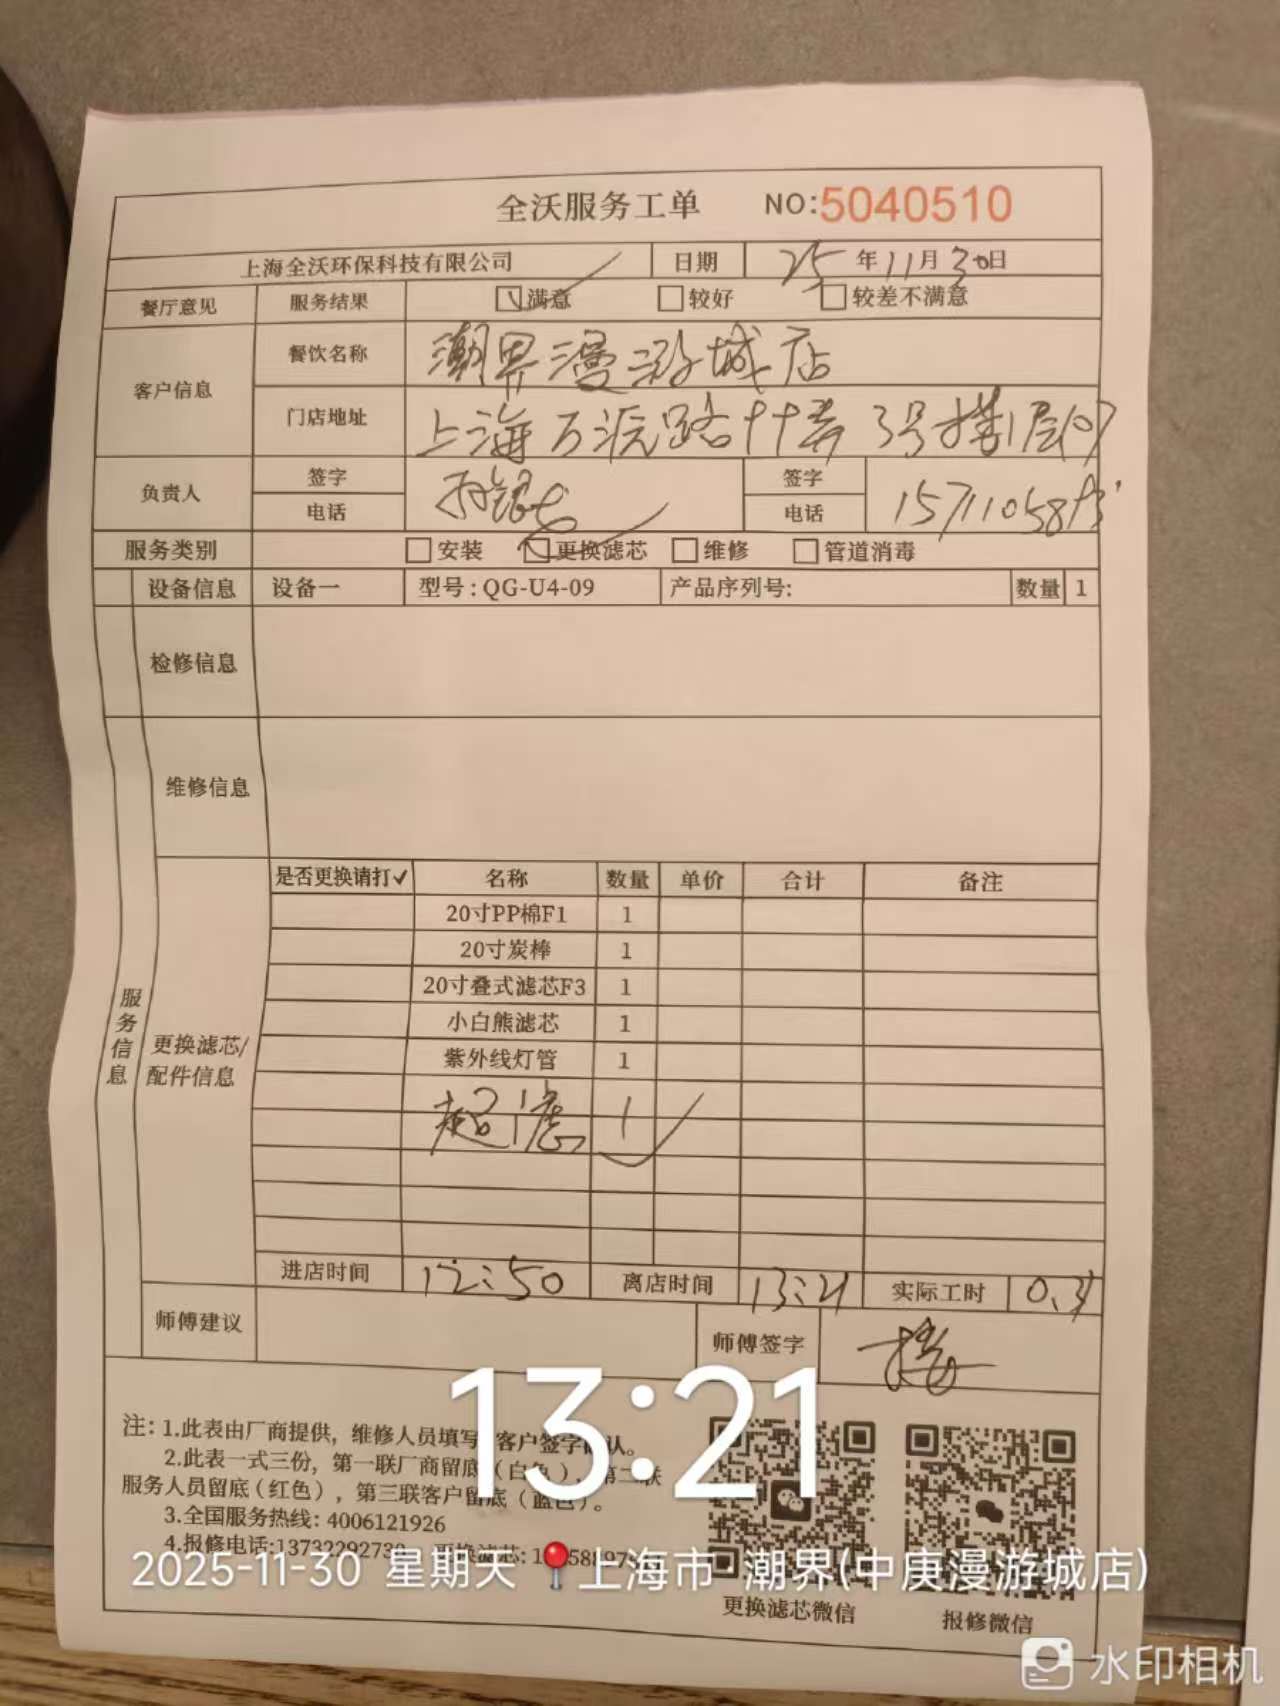 全沃服务工单 NO:5040510
上海全沃环保科技有限公司 日期 25年11月30日
餐厅意见 服务结果 满意 较好 较差不满意
客户信息 餐饮名称 潮界漫游城店
门店地址 上海万派路 3号楼1层
负责人 签字 签字
电话 电话
服务类别 安装 更换滤芯 维修 管道消毒
设备信息 设备一 型号:QG-U4-09 产品序列号: 数量 1
检修信息
维修信息
服务信息
更换滤芯/配件信息
是否更换请打✓ 名称 数量 单价 合计 备注
20寸PP棉F1 1
20寸炭棒 1
20寸叠式滤芯F3 1
小白熊滤芯 1
紫外线灯管 1
超滤 1
进店时间 12:50 离店时间 13:21 实际工时 0.5
师傅建议 师傅签字
13:21
注:1.此表由厂商提供,维修人员填写 客户签字确认。
2.此表一式三份,第一联厂商留底(白色),第二联
服务人员留底(红色),第三联客户留底(蓝色)。
3.全国服务热线:4006121926
4.报修电话:1373229273 更换滤芯:
2025-11-30 星期天 上海市 潮界(中庚漫游城店)
更换滤芯微信 报修微信
水印相机